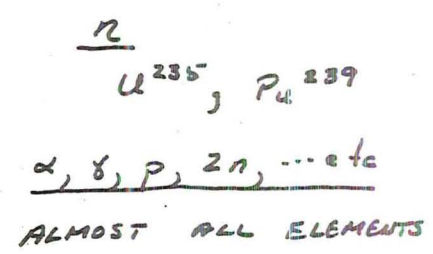 n
U²³⁵, Pu²³⁹
α, γ, p, 2n, ... etc
ALMOST ALL ELEMENTS